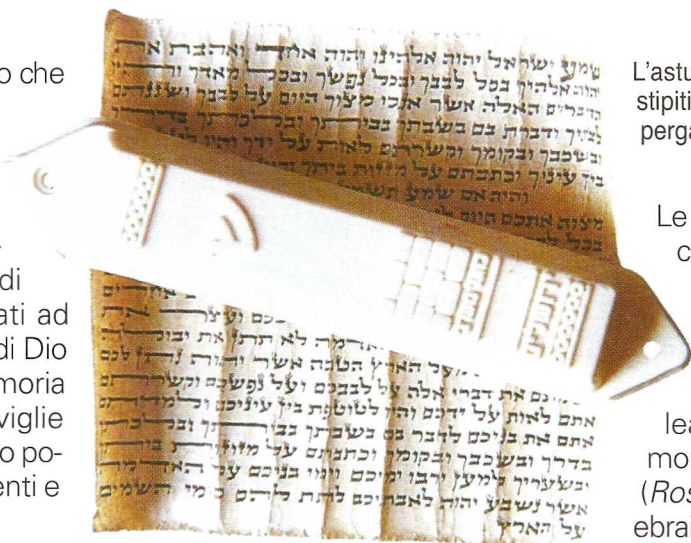 o che
di
ati ad
di Dio
moria
viglie
o po-
enti e
שמע ישראל יהוה אלהינו יהוה אחד ואהבת את
יהוה אלהיך בכל לבבך ובכל נפשך ובכל מאדך והיו
הדברים האלה אשר אנכי מצוך היום על לבבך ושננתם
לבניך ודברת בם בשבתך בביתך ובלכתך בדרך
ובשכבך ובקומך וקשרתם לאות על ידך והיו
בין עיניך וכתבתם על מזזות ביתך
והיה אם שמע
מצוה אתכם היום
בכל
ירושלים
ועצר את
לא תתן את יבולה
מעל הארץ הטבה אשר יהוה נתן לכם
ושמתם את דברי אלה על לבבכם ועל נפשכם וקשרתם
אתם לאות על ידכם והיו לטוטפת בין עיניכם ולמדתם
אתם את בניכם לדבר בם בשבתך בביתך ובלכתך
בדרך ובשכבך ובקומך וכתבתם על מזוזות ביתך
ובשעריך למען ירבו ימיכם וימי בניכם על האדמה
אשר נשבע יהוה לאבתיכם לתת להם כימי השמים
על הארץ
L'astu
stipiti
perga
Le
c
lea
mo
(Ros
ebrai